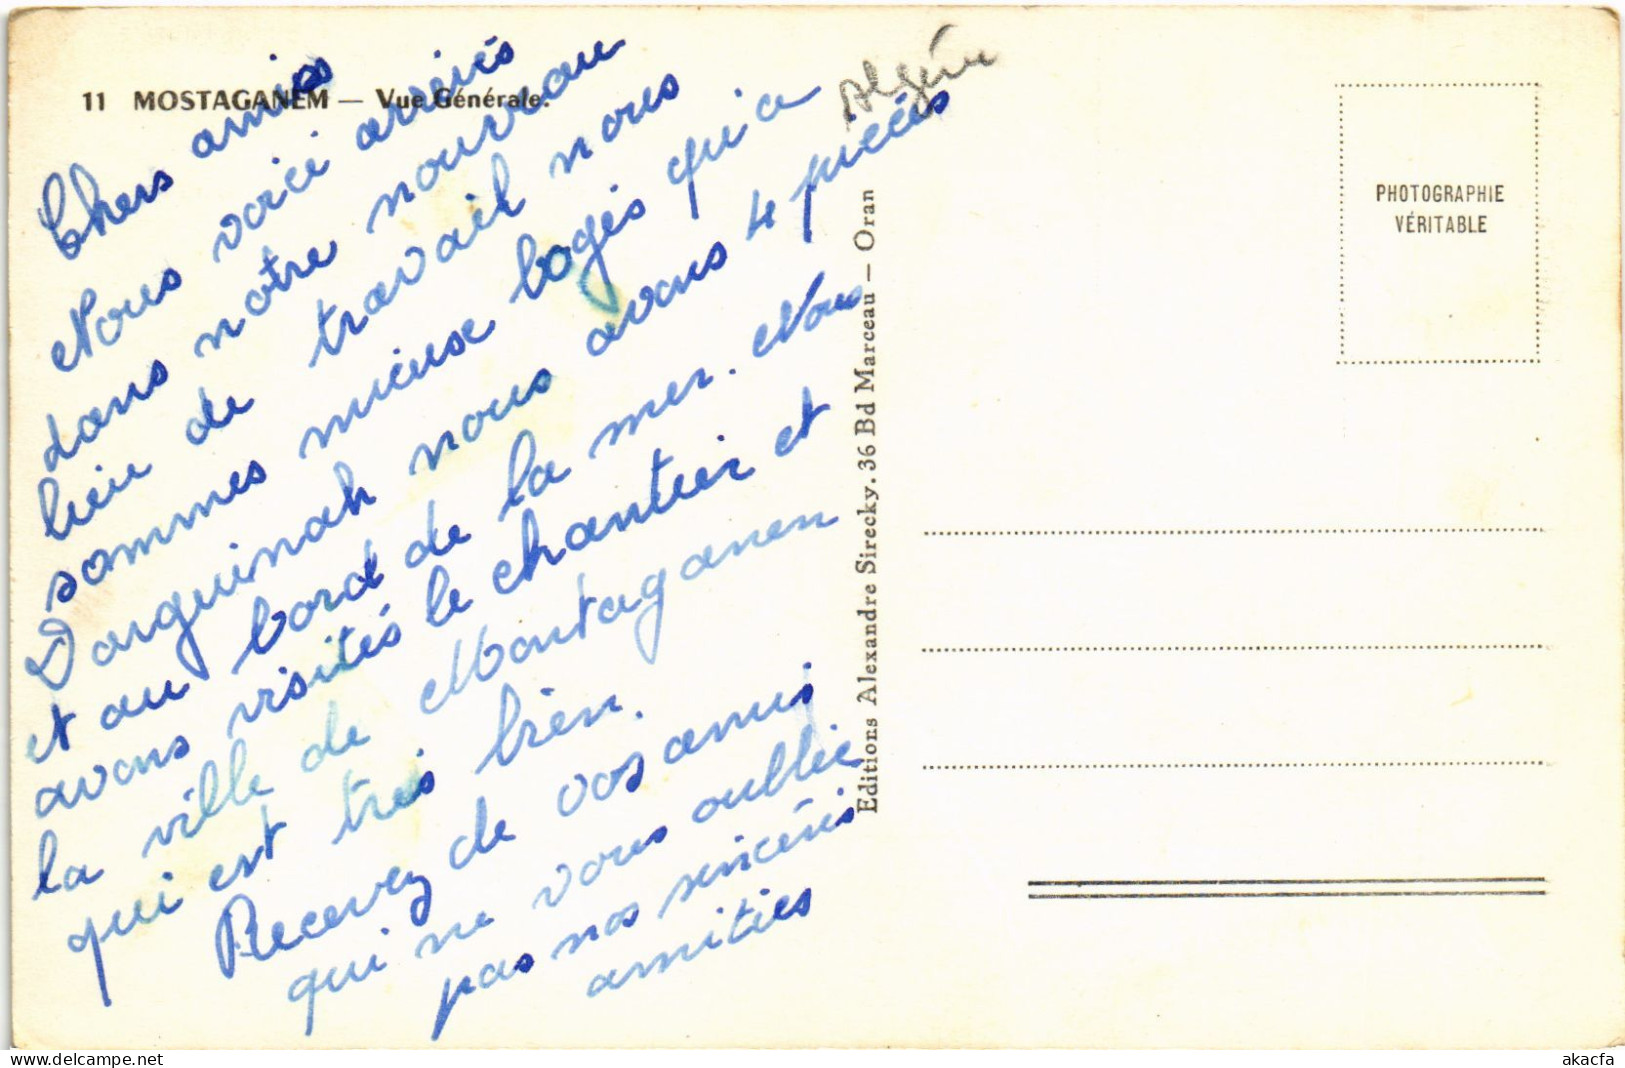 11 MOSTAGANEM — Vue Générale.
Algérie
Chers amies
Nous voici arrivés
dans notre nouveau
lieu de travail nous
sommes mieux logés qu'a
Darguinah nous avons 4 pièces
et au bord de la mer. Nous
avons visités le chantier et
la ville de Montaganen
qui est très bien.
Recevez de vos amis
qui ne vous oublie
pas nos sincéris
amitiés
Editions Alexandre Sirecky. 36 Bd Marceau — Oran
PHOTOGRAPHIE
VÉRITABLE
delcampe.net
akacfa